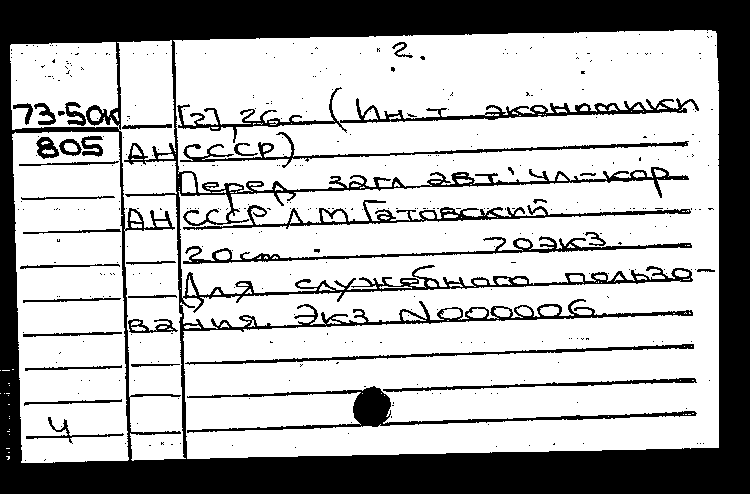 2.
73-50к [2], 26 с. (Ин-т экономики
805 АН СССР).
Перед загл. авт.: чл.-кор.
АН СССР Л.М. Гатовский.
20 см. 70 экз.
Для служебного пользо-
вания. Экз. N000006
Ч